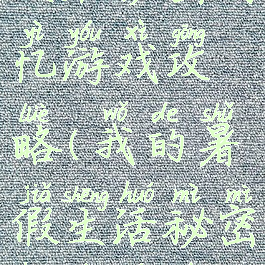 yì yóu xì gōng
忆游戏攻
lüè wǒ de shǔ
略(我的暑
jiǎ shēng huó mì mì
假生活秘密